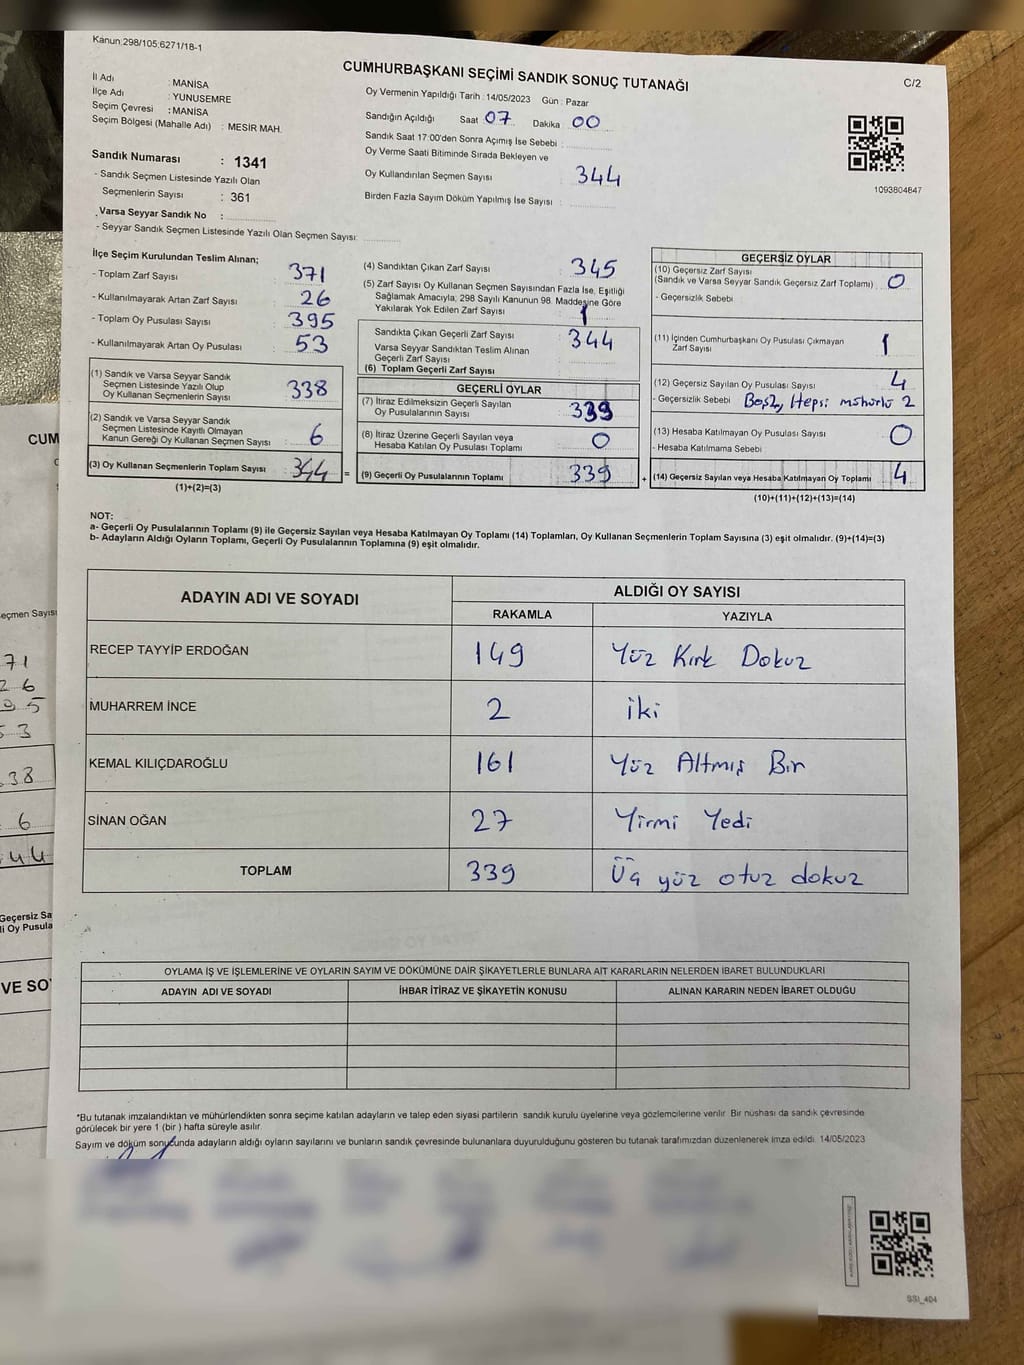 Kanun:298/105:6271/18-1
CUMHURBAŞKANI SEÇİMİ SANDIK SONUÇ TUTANAĞI
C/2
İl Adı : MANİSA
İlçe Adı : YUNUSEMRE
Seçim Çevresi : MANİSA
Seçim Bölgesi (Mahalle Adı) : MESİR MAH.
Sandık Numarası : 1341
- Sandık Seçmen Listesinde Yazılı Olan
Seçmenlerin Sayısı : 361
Varsa Seyyar Sandık No :
- Seyyar Sandık Seçmen Listesinde Yazılı Olan Seçmen Sayısı:
Oy Vermenin Yapıldığı Tarih : 14/05/2023 Gün : Pazar
Sandığın Açıldığı Saat 07 Dakika 00
Sandık Saat 17:00'den Sonra Açımış İse Sebebi :
Oy Verme Saati Bitiminde Sırada Bekleyen ve
Oy Kullandırılan Seçmen Sayısı 344
Birden Fazla Sayım Döküm Yapılmış İse Sayısı :
1093804847
İlçe Seçim Kurulundan Teslim Alınan;
- Toplam Zarf Sayısı 371
- Kullanılmayarak Artan Zarf Sayısı 26
- Toplam Oy Pusulası Sayısı 395
- Kullanılmayarak Artan Oy Pusulası 53
(1) Sandık ve Varsa Seyyar Sandık
Seçmen Listesinde Yazılı Olup
Oy Kullanan Seçmenlerin Sayısı 338
(2) Sandık ve Varsa Seyyar Sandık
Seçmen Listesinde Kayıtlı Olmayan
Kanun Gereği Oy Kullanan Seçmen Sayısı 6
(3) Oy Kullanan Seçmenlerin Toplam Sayısı 344 =
(1)+(2)=(3)
(4) Sandıktan Çıkan Zarf Sayısı 345
(5) Zarf Sayısı Oy Kullanan Seçmen Sayısından Fazla İse, Eşitliği
Sağlamak Amacıyla; 298 Sayılı Kanunun 98. Maddesine Göre
Yakılarak Yok Edilen Zarf Sayısı 1
Sandıkta Çıkan Geçerli Zarf Sayısı 344
Varsa Seyyar Sandıktan Teslim Alınan
Geçerli Zarf Sayısı
(6) Toplam Geçerli Zarf Sayısı
GEÇERLİ OYLAR
(7) İtiraz Edilmeksizin Geçerli Sayılan
Oy Pusulalarının Sayısı 339
(8) İtiraz Üzerine Geçerli Sayılan veya
Hesaba Katılan Oy Pusulası Toplamı 0
(9) Geçerli Oy Pusulalarının Toplamı 339 +
GEÇERSİZ OYLAR
(10) Geçersiz Zarf Sayısı
(Sandık ve Varsa Seyyar Sandık Geçersiz Zarf Toplamı) 0
- Geçersizlik Sebebi
(11) İçinden Cumhurbaşkanı Oy Pusulası Çıkmayan
Zarf Sayısı 1
(12) Geçersiz Sayılan Oy Pusulası Sayısı 4
- Geçersizlik Sebebi Boş2, Hepsi mühürlü 2
(13) Hesaba Katılmayan Oy Pusulası Sayısı 0
- Hesaba Katılmama Sebebi
(14) Geçersiz Sayılan veya Hesaba Katılmayan Oy Toplamı 4
(10)+(11)+(12)+(13)=(14)
NOT:
a- Geçerli Oy Pusulalarının Toplamı (9) ile Geçersiz Sayılan veya Hesaba Katılmayan Oy Toplamı (14) Toplamları, Oy Kullanan Seçmenlerin Toplam Sayısına (3) eşit olmalıdır. (9)+(14)=(3)
b- Adayların Aldığı Oyların Toplamı, Geçerli Oy Pusulalarının Toplamına (9) eşit olmalıdır.
ADAYIN ADI VE SOYADI ALDIĞI OY SAYISI
RAKAMLA YAZIYLA
RECEP TAYYİP ERDOĞAN 149 Yüz Kırk Dokuz
MUHARREM İNCE 2 iki
KEMAL KILIÇDAROĞLU 161 Yüz Altmış Bir
SİNAN OĞAN 27 Yirmi Yedi
TOPLAM 339 Üç yüz otuz dokuz
OYLAMA İŞ VE İŞLEMLERİNE VE OYLARIN SAYIM VE DÖKÜMÜNE DAİR ŞİKAYETLERLE BUNLARA AİT KARARLARIN NELERDEN İBARET BULUNDUKLARI
ADAYIN ADI VE SOYADI İHBAR İTİRAZ VE ŞİKAYETİN KONUSU ALINAN KARARIN NEDEN İBARET OLDUĞU
*Bu tutanak imzalandıktan ve mühürlendikten sonra seçime katılan adayların ve talep eden siyasi partilerin sandık kurulu üyelerine veya gözlemcilerine verilir. Bir nüshası da sandık çevresinde
görülecek bir yere 1 (bir ) hafta süreyle asılır.
Sayım ve döküm sonucunda adayların aldığı oyların sayılarını ve bunların sandık çevresinde bulunanlara duyurulduğunu gösteren bu tutanak tarafımızdan düzenlenerek imza edildi. 14/05/2023
SSİ_404
CUM
eçmen Sayısı
71
26
95
53
38
6
44
Geçersiz Sa
li Oy Pusula
VE SO